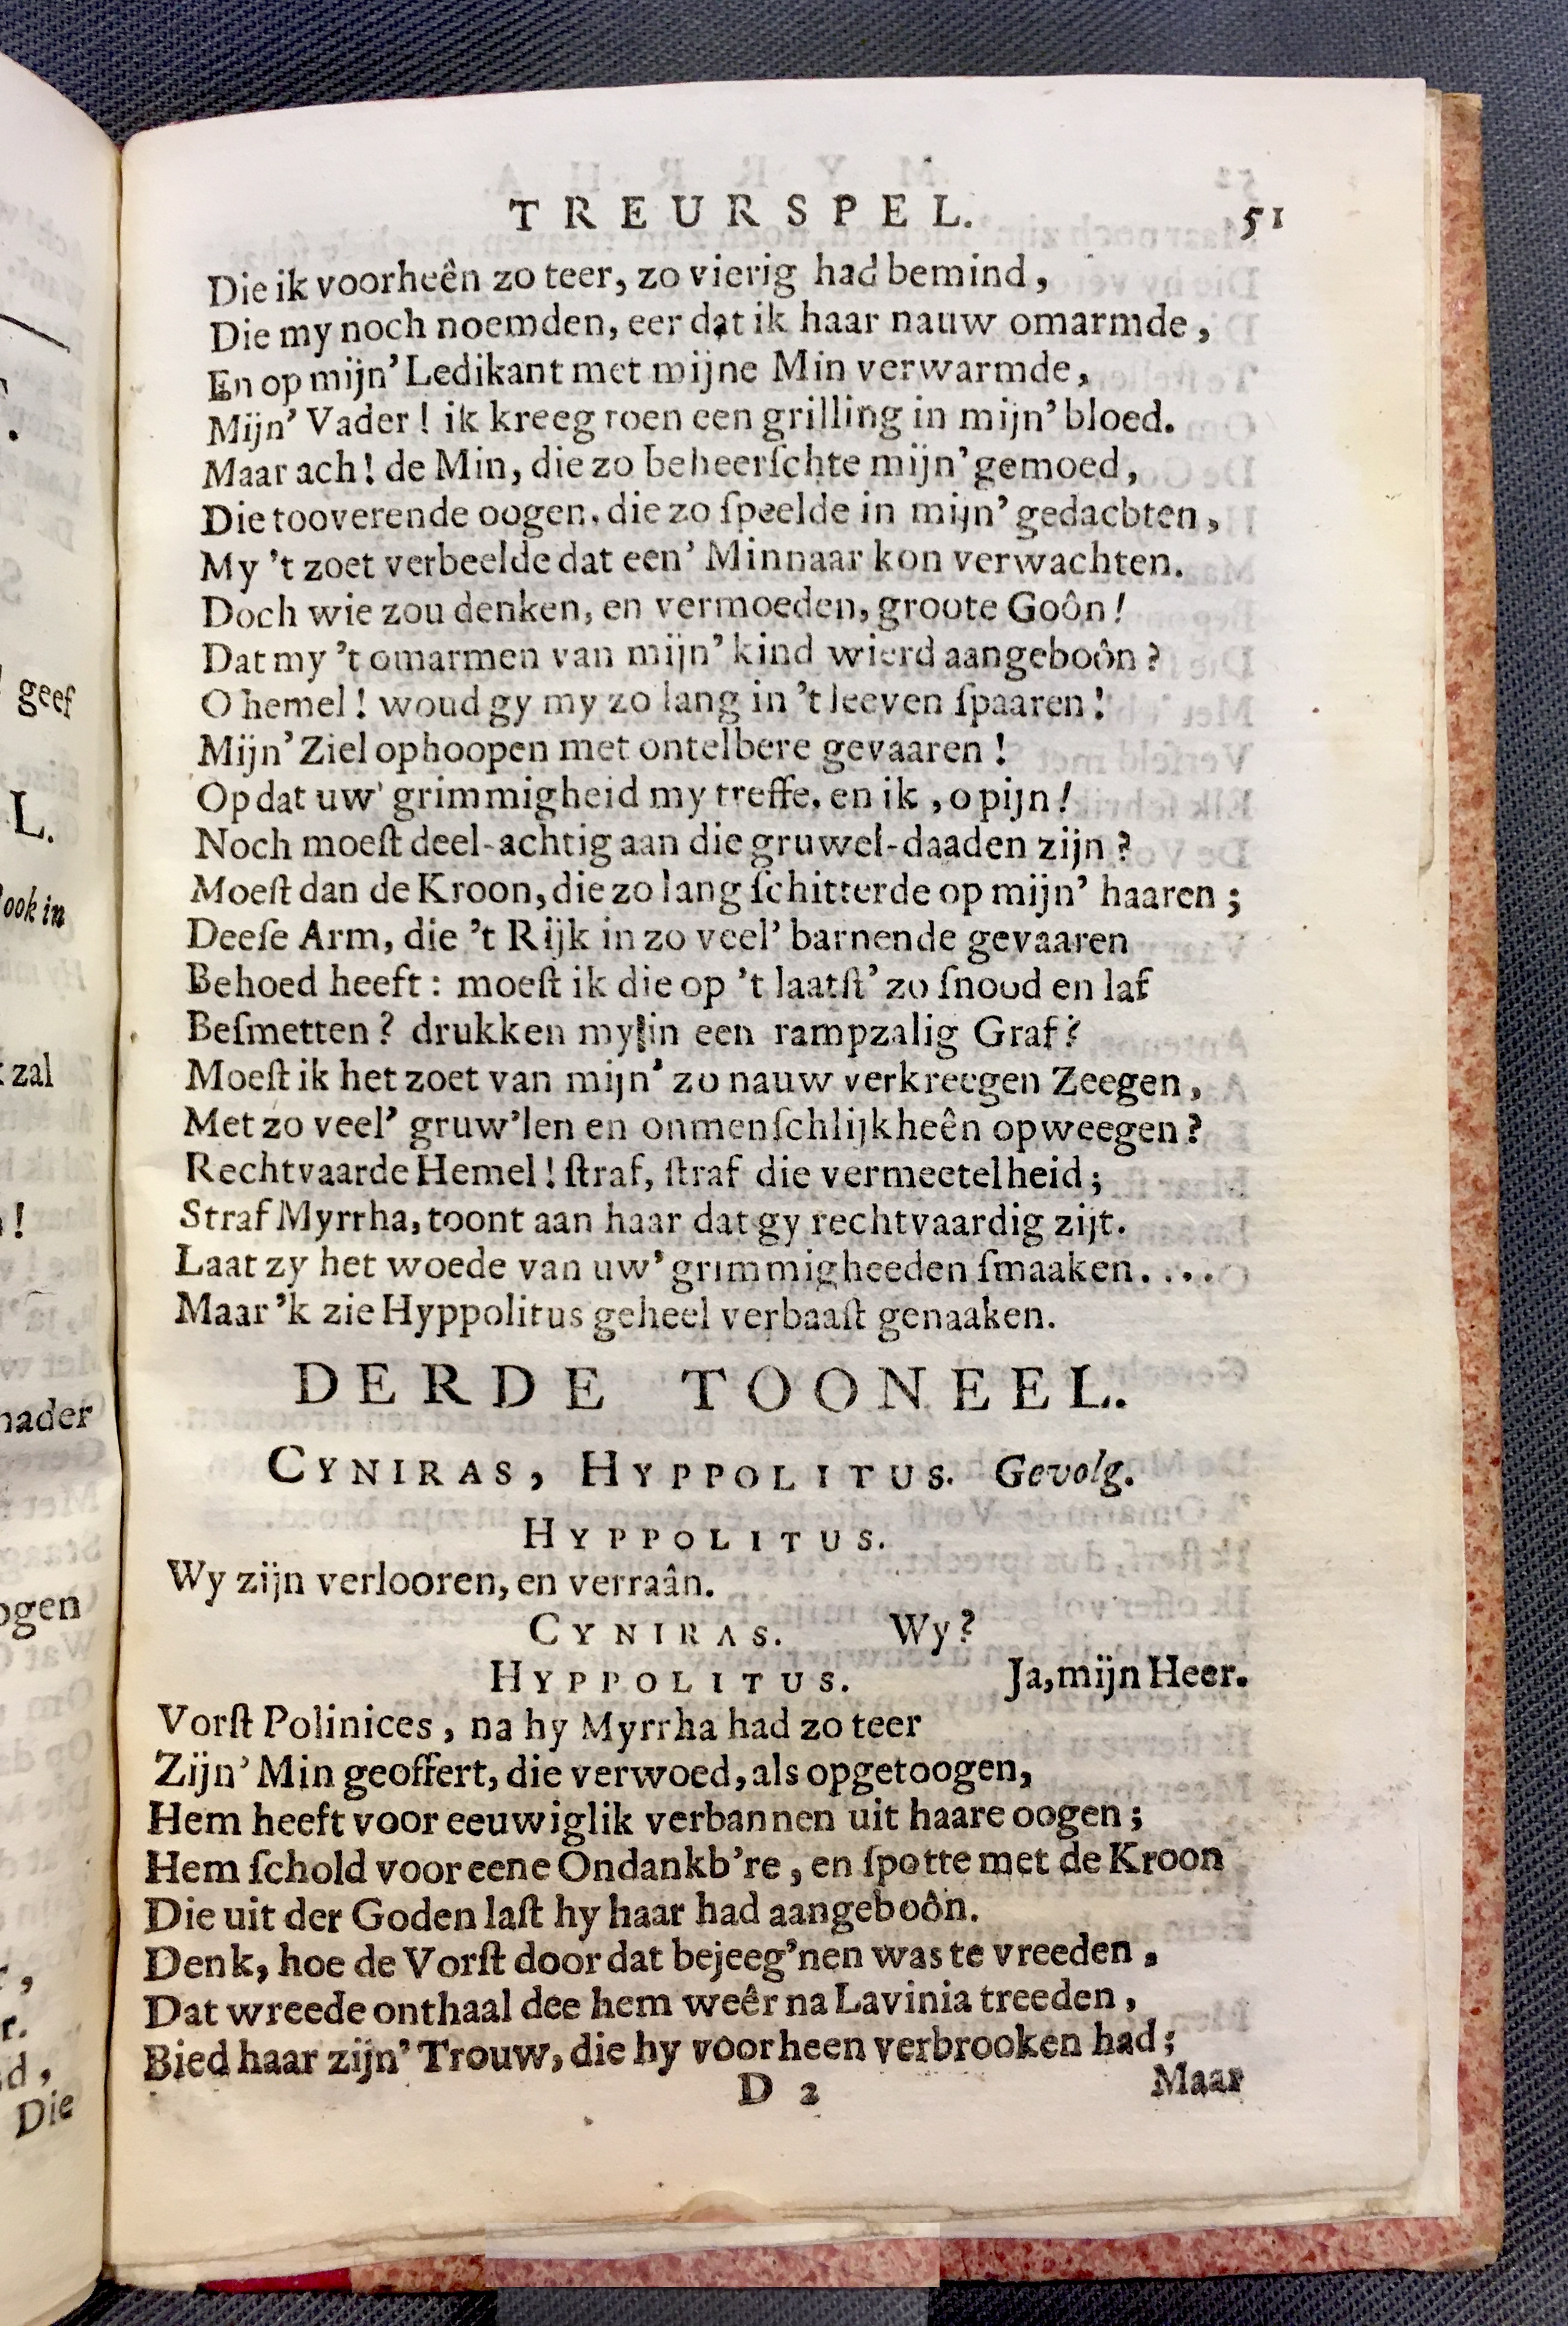 TREURSPEL. 51
Die ik voorheên zo teer, zo vierig had bemind,
Die my noch noemden, eer dat ik haar nauw omarmde,
En op mijn’ Ledikant met mijne Min verwarmde,
Mijn’ Vader! ik kreeg toen een grilling in mijn’ bloed.
Maar ach! de Min, die zo beheerſchte mijn’ gemoed,
Die tooverende oogen, die zo ſpeelde in mijn’ gedachten,
My ’t zoet verbeelde dat een’ Minnaar kon verwachten.
Doch wie zou denken, en vermoeden, groote Goôn!
Dat my ’t omarmen van mijn’ kind wierd aangeboôn?
O hemel! woud gy my zo lang in ’t leeven ſpaaren!
Mijn’ Ziel ophoopen met ontelbere gevaaren!
Opdat uw’ grimmigheid my treffe, en ik, o pijn!
Noch moeſt deel-achtig aan die gruwel-daaden zijn?
Moeſt dan de Kroon, die zo lang ſchitterde op mijn’ haaren;
Deeſe Arm, die ’t Rijk in zo veel’ barnende gevaaren
Behoed heeft: moeſt ik die op ’t laatſt’ zo ſnood en laf
Beſmetten? drukken my in een rampzalig Graf?
Moeſt ik het zoet van mijn’ zo nauw verkreegen Zeegen,
Met zo veel’ gruw’len en onmenſchlijkheên opweegen?
Rechtvaarde Hemel! ſtraf, ſtraf die vermeetelheid;
Straf Myrrha, toont aan haar dat gy rechtvaardig zijt.
Laat zy het woede van uw’ grimmigheeden ſmaaken....
Maar ’k zie Hyppolitus geheel verbaaſt genaaken.
DERDE TOONEEL.
CYNIRAS, HYPPOLITUS. Gevolg.
HYPPOLITUS.
Wy zijn verlooren, en verraân.
CYNIRAS. Wy?
HYPPOLITUS. Ja, mijn Heer.
Vorſt Polinices, na hy Myrrha had zo teer
Zijn’ Min geoffert, die verwoed, als opgetoogen,
Hem heeft voor eeuwiglik verbannen uit haare oogen;
Hem ſchold voor eene Ondankb’re, en ſpotte met de Kroon
Die uit der Goden laſt hy haar had aangeboôn.
Denk, hoe de Vorſt door dat bejeeg’nen was te vreeden,
Dat wreede onthaal dee hem weêr na Lavinia treeden,
Bied haar zijn’ Trouw, die hy voorheen verbrooken had;
D 2 Maar
geef
L.
ook in
zal
!
nader
ogen
Die